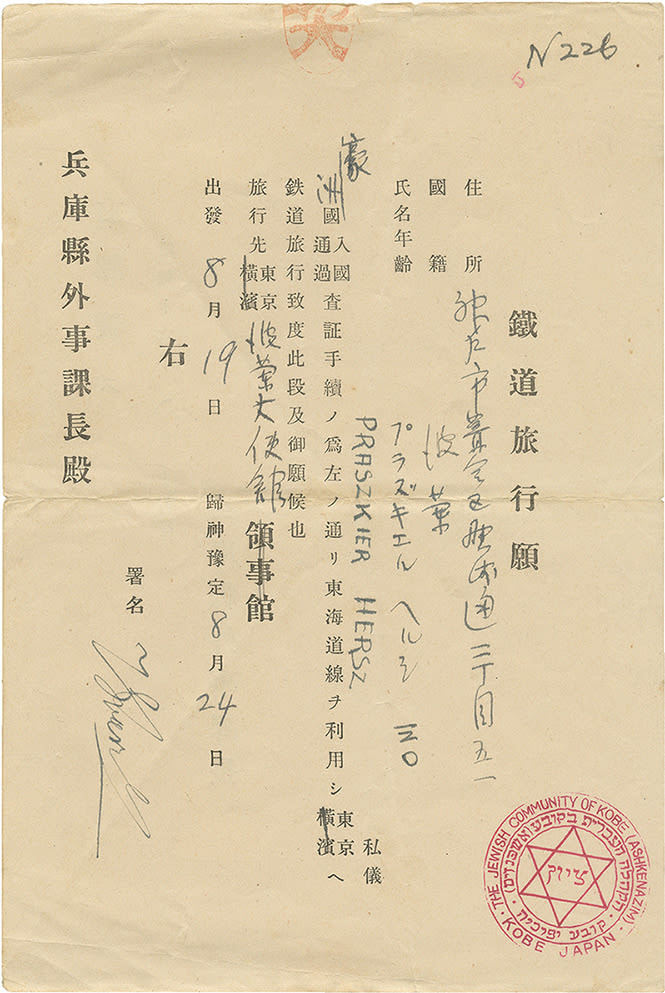 N226
鐵道旅行願
住所 神戸市葺合区熊内通二丁目五一
國籍 波蘭
氏名年齡 プラズキエル ヘルシ 三〇
PRASZKIER HERSZ
私儀
豪洲 國 入國 通過 査証手續ノ爲左ノ通リ東海道線ヲ利用シ 東京 橫濱 へ
鉄道旅行致度此段及御願候也
旅行先 東京 橫濱 波蘭大使館 領事館
出發 8月19日 歸神豫定 8月24日
右
署名
兵庫縣外事課長殿
THE JEWISH COMMUNITY OF KOBE (ASHKENAZIM)
KOBE JAPAN
ציון